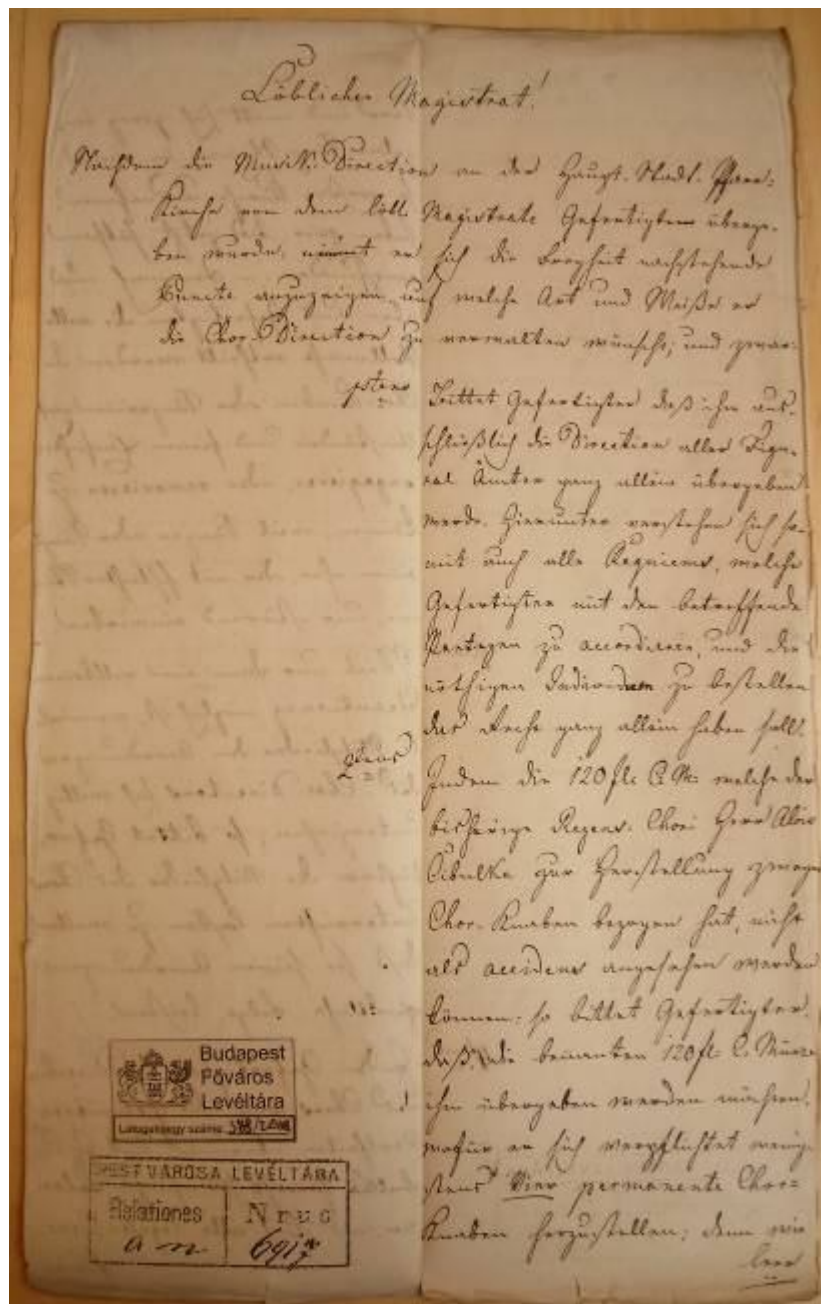 Löblicher Magistrat!
Nachdem die Musik-Direction an der Haupt-Stadt-Pfarr-
Kirche von dem löbl. Magistrate Gefertigtem überge-
ben wurde, nimmt er sich die Freyheit nachstehende
Puncte anzuzeigen, auf welche Art und Weiße er
die Chor-Direction zu verwalten wünscht; und zwar:
1stens
Bittet Gefertigter daß ihm aus-
schließlich die Direction aller Figu-
ral Ämter ganz allein übergeben
werde. Hierunter verstehen sich so-
mit auch alle Requiems, welche
Gefertigter mit den betreffende
Parteyen zu accordiren, und die
nöthigen Individuen zu bestellen
das Recht ganz allein haben soll.
2tens
Indem die 120 fl. C. M. welche der
bisherige Regens-Chori Herr Alois
Cibulka zur Herstellung zweyer
Chor-Knaben bezogen hat, nicht
als accidens angesehen werden
können: so bittet Gefertigter,
daß die benannten 120 fl. C. Münze
ihm übergeben werden möchten,
wofür er sich verpflichtet wenig-
stens Vier permanente Chor-
Knaben herzustellen; denn wie
Budapest
Főváros
Levéltára
PEST VÁROSA LEVÉLTÁRA
Relationes
Nrus
a n